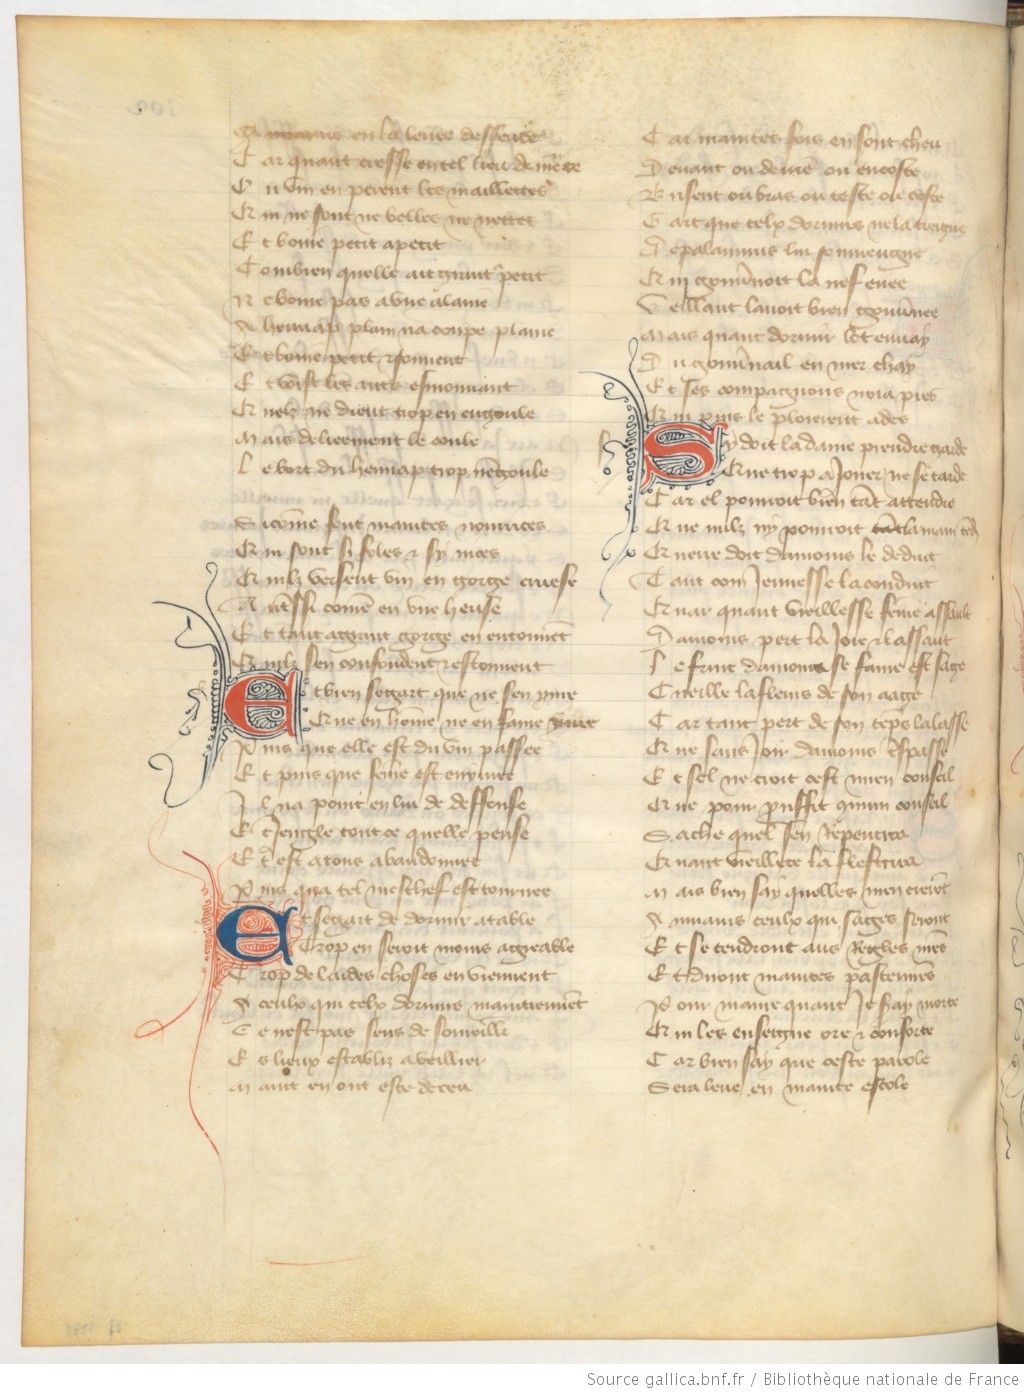 en la leure dessence
Car quant cresse en tel lieu demeure
en perent les maillettes
Qui ne sont ne belles ne nettes
Et boiue petit a petit
Combien quelle ait grant apetit
Ne boiue pas a vne alaine
A hennap plain na coupe plaine
Et boiue petit et souuent
Et voist les autres esmouuant
Quelz ne dient trop en engoule
Mais delieement le coule
Le bort du hennap trop nengoule
Si come font maintes nourrices
Qui sont si foles et sy nices
Quilz versent vin en gorge creuse
Aussi comme en vne heuse
Et tant a grant gorge en entonnent
Quilz sen confondent et estonnent
Et bien se gart que ne sen yure
Que en homme ne en fame yure
Puis que elle est du vin passee
Et puis que femme est enyuree
Il na point en lui de deffense
Et Jengle tout ce quelle pense
Et est a tous abandonnee
Puis qua tel meschef est tournee
Et se gart de dormir a table
Trop en seroit moins aggreable
Trop de laides choses en viennent
A ceulx qui telx dormirs maintiennent
Ce nest pas sens de someillier
Es lieux establiz a veillier
Maint en ont este deceu
Car maintes fois en sont cheu
Deuant ou derriere ou encoste
Brisent ou bras ou teste ou coste
Gart que telx dormirs ne la tiengne
De palamirus lui souuiengne
Qui gouuernoit la nef enee
Veillant lauoit bien gouuernee
Mais quant dormir lot enuay
Du gouuernail en mer chay
Et ses compaignons noia pres
Qui puis le plorerent ades
Sy doit la dame prendre garde
Que trop a Jouer ne se tarde
Car el pourroit bien tant attendre
Que nulz ny pourroit la main tendre
Querre doit damours le deduit
Tant com Jeunesse la conduit
Quar quant vieillesse femme assault
Damours pert la Joie et lassaut
Le fruit damours se fame est sage
Cueille la fleurs de son aage
Car tant pert de son temps la lasse
Que sans Joir damours Respasse
Et sel ne croit cest mien conseil
Que pour prouffit commun conseil
Sache quel sen Repentira
Quant vieillece la flestrira
Mais bien say quelles men creront
Aumains ceulx qui sages seront
Et se tendront aus Regles nostres
Et diront maintes patenostres
Pour mame quant Je seray morte
Qui les enseigne ore et conforte
Car bien say que ceste parole
Sera leue en mainte escole
Source gallica.bnf.fr / Bibliothèque nationale de France